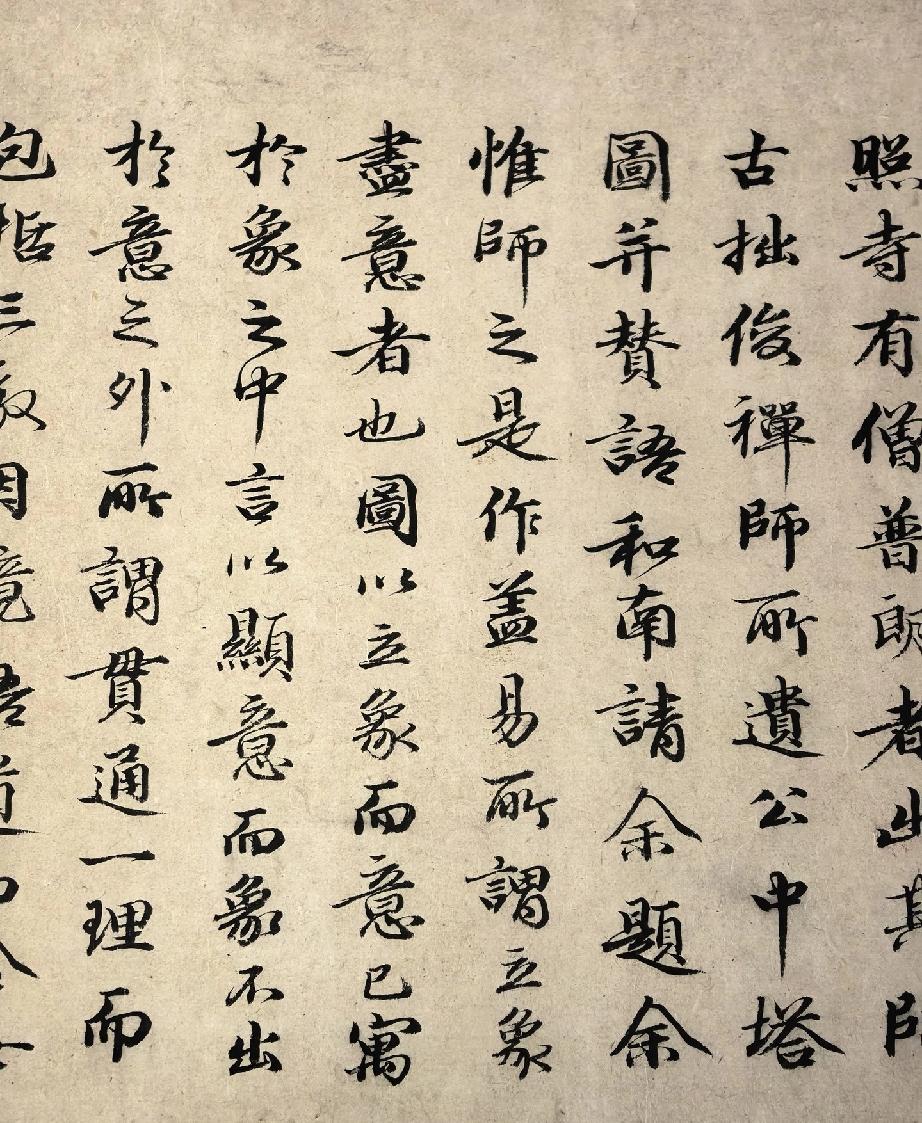 照寺有僧普朗者出其師
古拙俊禪師所遺公中塔
圖并賛語和南請余題余
惟師之是作盖易所謂立象
盡意者也圖以立象而意已寓
於象之中言以顯意而象不出
於意之外所謂貫通一理而
包括三教因境悟道